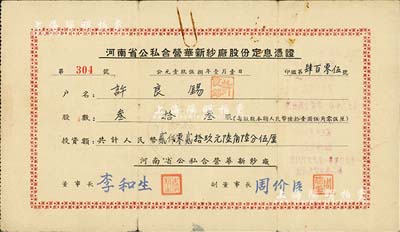 河南省公私合營華新紗廠股份定息憑證
第 304 號 公元壹玖伍捌年壹月壹日 印鑑 肆百零伍 號
户名： 許良錫
股數： 叁拾叁 股
投資額：共計人民幣 拾玖元陸角陸分伍厘
河南省公私合營華新紗廠
董事長 李和生 副董事長 周价臣